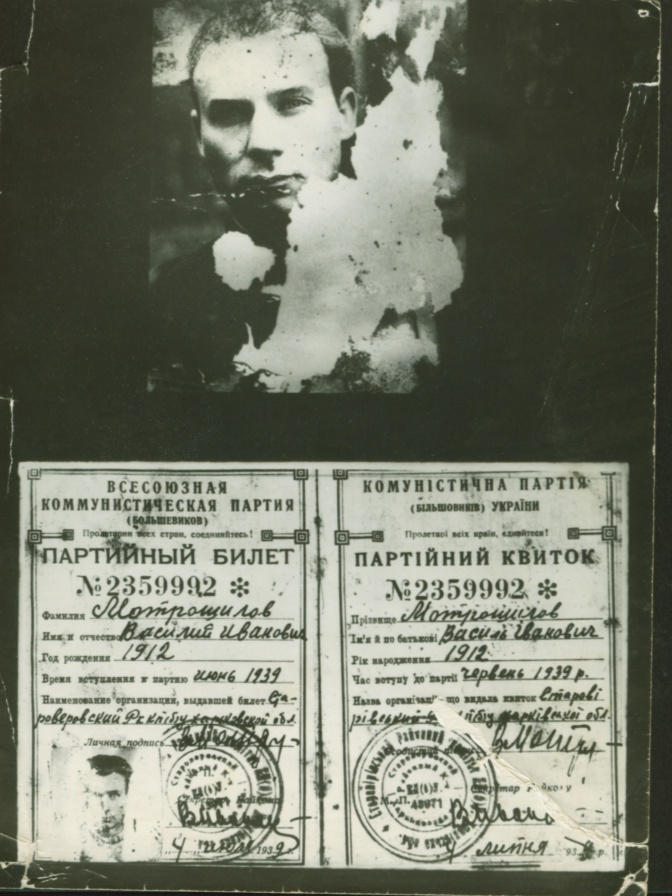 ВСЕСОЮЗНАЯ
КОММУНИСТИЧЕСКАЯ ПАРТИЯ
(БОЛЬШЕВИКОВ)
Пролетарии всех стран, соединяйтесь!
ПАРТИЙНЫЙ БИЛЕТ
№2359992 *
Фамилия Мотрошилов
Имя и отчество Василий Иванович
Год рождения 1912
Время вступления в партию июнь 1939
Наименование организации, выдавшей билет Ста-
роверовский Рк кп(б)у харковской обл.
Личная подпись
4 июля 1939
КОМУНІСТИЧНА ПАРТІЯ
(БІЛЬШОВИКІВ) УКРАЇНИ
Пролетарі всіх країн, єднайтеся!
ПАРТІЙНИЙ КВИТОК
№2359992 *
Прізвище Мотрошилов
Ім'я й по батькові Василь Іванович
Рік народження 1912
Час вступу до партії червень 1939 р.
Назва організації, що видала квиток Старові
рівський кп(б)у харківської обл.
підпис
Секретар Райкому
М. П.
липня 193 р.